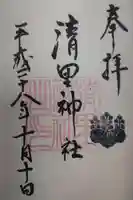 奉拝
清里神社
平成二十八年十月十日